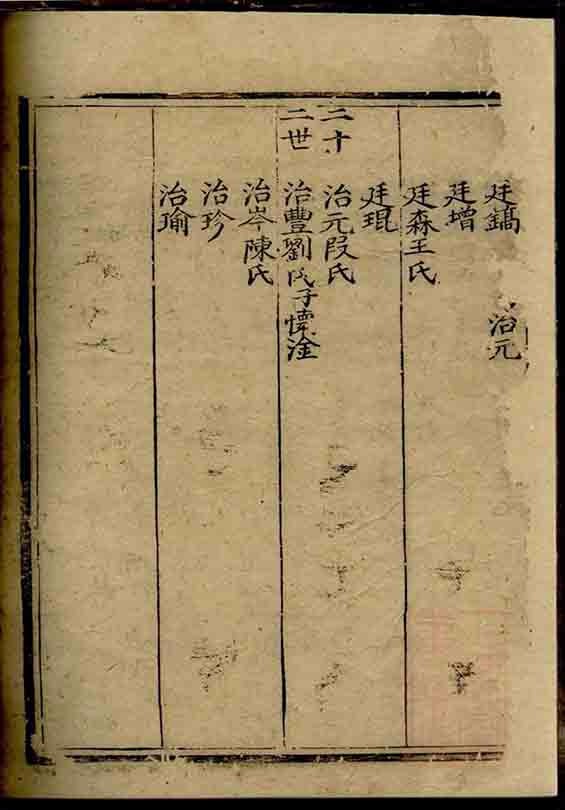 廷鐫 治元
廷增
廷森王氏
廷琨
二十二世
治元段氏
治豐劉氏子憓淦
治岑陳氏
治珍
治瑜